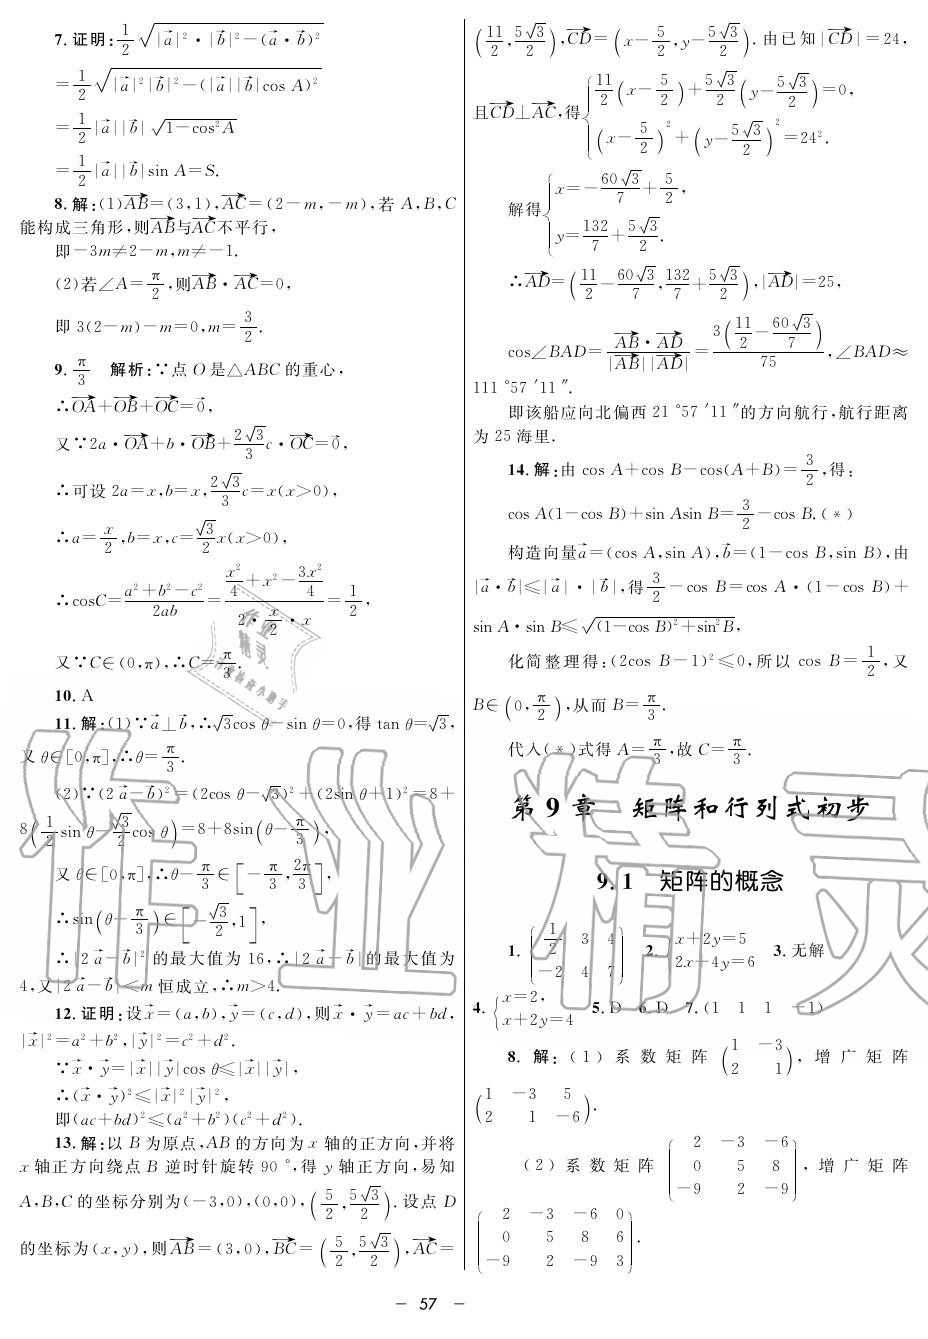 7. 证明:$\frac{1}{2}\sqrt{|\vec{a}|^2·|\vec{b}|^2-(\vec{a}·\vec{b})^2}$
$=\frac{1}{2}\sqrt{|\vec{a}|^2|\vec{b}|^2-(|\vec{a}||\vec{b}|\cos A)^2}$
$=\frac{1}{2}|\vec{a}||\vec{b}|\sqrt{1-\cos^2 A}$
$=\frac{1}{2}|\vec{a}||\vec{b}|\sin A=S.$
8. 解:(1)$\vec{AB}=(3,1),\vec{AC}=(2-m,-m)$,若 A,B,C
能构成三角形,则$\vec{AB}$与$\vec{AC}$不平行,
即$-3m≠2-m,m≠-1.$
(2)若∠A=$\frac{π}{2}$,则$\vec{AB}·\vec{AC}=0$,
即 $3(2-m)-m=0,m=\frac{3}{2}.$
9. $\frac{π}{3}$ 解析:∵点 O 是△ABC 的重心,
∴$\vec{OA}+\vec{OB}+\vec{OC}=\vec{0}$,
又∵$2a·\vec{OA}+b·\vec{OB}+\frac{2\sqrt{3}}{3}c·\vec{OC}=\vec{0}$,
∴可设 $2a=x,b=x,\frac{2\sqrt{3}}{3}c=x(x>0)$,
∴$a=\frac{x}{2},b=x,c=\frac{\sqrt{3}}{2}x(x>0)$,
∴$\cos C=\frac{a^2+b^2-c^2}{2ab}=\frac{\frac{x^2}{4}+x^2-\frac{3x^2}{4}}{2·\frac{x}{2}·x}=\frac{1}{2}$,
又∵C∈(0,π),∴$C=\frac{π}{3}.$
10. A
11. 解:(1)∵$\vec{a}⊥\vec{b}$,∴$\sqrt{3}\cos θ-\sin θ=0$,得 $\tan θ=\sqrt{3}$,
又 θ∈[0,π],∴$θ=\frac{π}{3}.$
(2)∵$(2\vec{a}-\vec{b})^2=(2\cos θ-\sqrt{3})^2+(2\sin θ+1)^2=8+$
$8\left(\frac{1}{2}\sin θ-\frac{\sqrt{3}}{2}\cos θ\right)=8+8\sin\left(θ-\frac{π}{3}\right)$,
又 θ∈[0,π],∴$θ-\frac{π}{3}∈\left[-\frac{π}{3},\frac{2π}{3}\right]$,
∴$\sin\left(θ-\frac{π}{3}\right)∈\left[-\frac{\sqrt{3}}{2},1\right]$,
∴$|2\vec{a}-\vec{b}|^2$ 的最大值为 16,∴$|2\vec{a}-\vec{b}|$的最大值为
4,又$|2\vec{a}-\vec{b}|<m$ 恒成立,∴$m>4.$
12. 证明:设$\vec{x}=(a,b),\vec{y}=(c,d)$,则$\vec{x}·\vec{y}=ac+bd$,
$|\vec{x}|^2=a^2+b^2,|\vec{y}|^2=c^2+d^2.$
∵$\vec{x}·\vec{y}=|\vec{x}||\vec{y}|\cos θ≤|\vec{x}||\vec{y}|$,
∴$(\vec{x}·\vec{y})^2≤|\vec{x}|^2|\vec{y}|^2$,
即$(ac+bd)^2≤(a^2+b^2)(c^2+d^2).$
13. 解:以 B 为原点,AB 的方向为 x 轴的正方向,并将
x 轴正方向绕点 B 逆时针旋转 90 °,得 y 轴正方向,易知
A,B,C 的坐标分别为$(-3,0),(0,0),\left(\frac{5}{2},\frac{5\sqrt{3}}{2}\right)$.设点 D
的坐标为(x,y),则$\vec{AB}=(3,0),\vec{BC}=\left(\frac{5}{2},\frac{5\sqrt{3}}{2}\right),\vec{AC}=$
$\left(\frac{11}{2},\frac{5\sqrt{3}}{2}\right),\vec{CD}=\left(x-\frac{5}{2},y-\frac{5\sqrt{3}}{2}\right)$.由已知$|\vec{CD}|=24$,
且$\vec{CD}⊥\vec{AC}$,得$\begin{cases}\frac{11}{2}\left(x-\frac{5}{2}\right)+\frac{5\sqrt{3}}{2}\left(y-\frac{5\sqrt{3}}{2}\right)=0,\\\left(x-\frac{5}{2}\right)^2+\left(y-\frac{5\sqrt{3}}{2}\right)^2=24^2.\end{cases}$
解得$\begin{cases}x=-\frac{60\sqrt{3}}{7}+\frac{5}{2},\\y=\frac{132}{7}+\frac{5\sqrt{3}}{2}.\end{cases}$
∴$\vec{AD}=\left(\frac{11}{2}-\frac{60\sqrt{3}}{7},\frac{132}{7}+\frac{5\sqrt{3}}{2}\right),|\vec{AD}|=25$,
$\cos∠BAD=\frac{\vec{AB}·\vec{AD}}{|\vec{AB}||\vec{AD}|}=\frac{3\left(\frac{11}{2}-\frac{60\sqrt{3}}{7}\right)}{75}$,∠BAD≈
111 °57 ′11 ″.
即该船应向北偏西 21 °57 ′11 ″的方向航行,航行距离
为 25 海里.
14. 解:由 $\cos A+\cos B-\cos(A+B)=\frac{3}{2}$,得:
$\cos A(1-\cos B)+\sin A\sin B=\frac{3}{2}-\cos B.$(*)
构造向量$\vec{a}=(\cos A,\sin A),\vec{b}=(1-\cos B,\sin B)$,由
$|\vec{a}·\vec{b}|≤|\vec{a}|·|\vec{b}|$,得$\frac{3}{2}-\cos B=\cos A·(1-\cos B)+$
$\sin A·\sin B≤\sqrt{(1-\cos B)^2+\sin^2 B}$,
化简整理得:$(2\cos B-1)^2≤0$,所以 $\cos B=\frac{1}{2}$,又
$B∈\left(0,\frac{π}{2}\right)$,从而 $B=\frac{π}{3}.$
代入(*)式得 $A=\frac{π}{3}$,故 $C=\frac{π}{3}.$
第 9 章 矩阵和行列式初步
9.1 矩阵的概念
1. $\begin{pmatrix}\frac{1}{2}&3&4\\-2&4&7\end{pmatrix}$ 2. $\begin{cases}x+2y=5\\2x-4y=6\end{cases}$ 3. 无解
4. $\begin{cases}x=2,\\x+2y=4\end{cases}$ 5. D 6. D 7. (1 1 1 -1)
8. 解:(1)系数矩阵$\begin{pmatrix}1&-3\\2&1\end{pmatrix}$,增广矩阵
$\begin{pmatrix}1&-3&5\\2&1&-6\end{pmatrix}.$
(2)系数矩阵$\begin{pmatrix}2&-3&-6\\0&5&8\\-9&2&-9\end{pmatrix}$,增广矩阵
$\begin{pmatrix}2&-3&-6&0\\0&5&8&6\\-9&2&-9&3\end{pmatrix}.$
— 57 —
作业精灵
作业
精灵